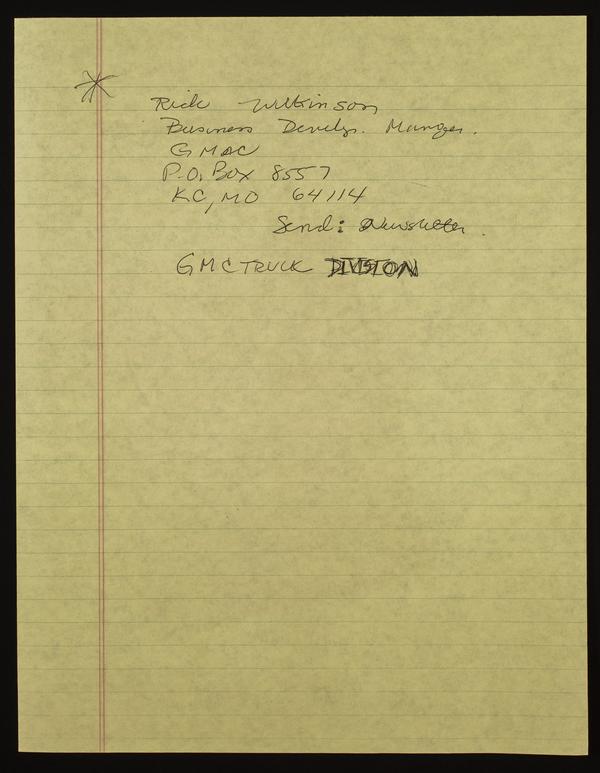 * Rick Wilkinson
Business Develp. Manger.
GMAC
P.O. Box 8557
KC, MO 64114
Send: Newsletter.
GMC TRUCK DIVISION